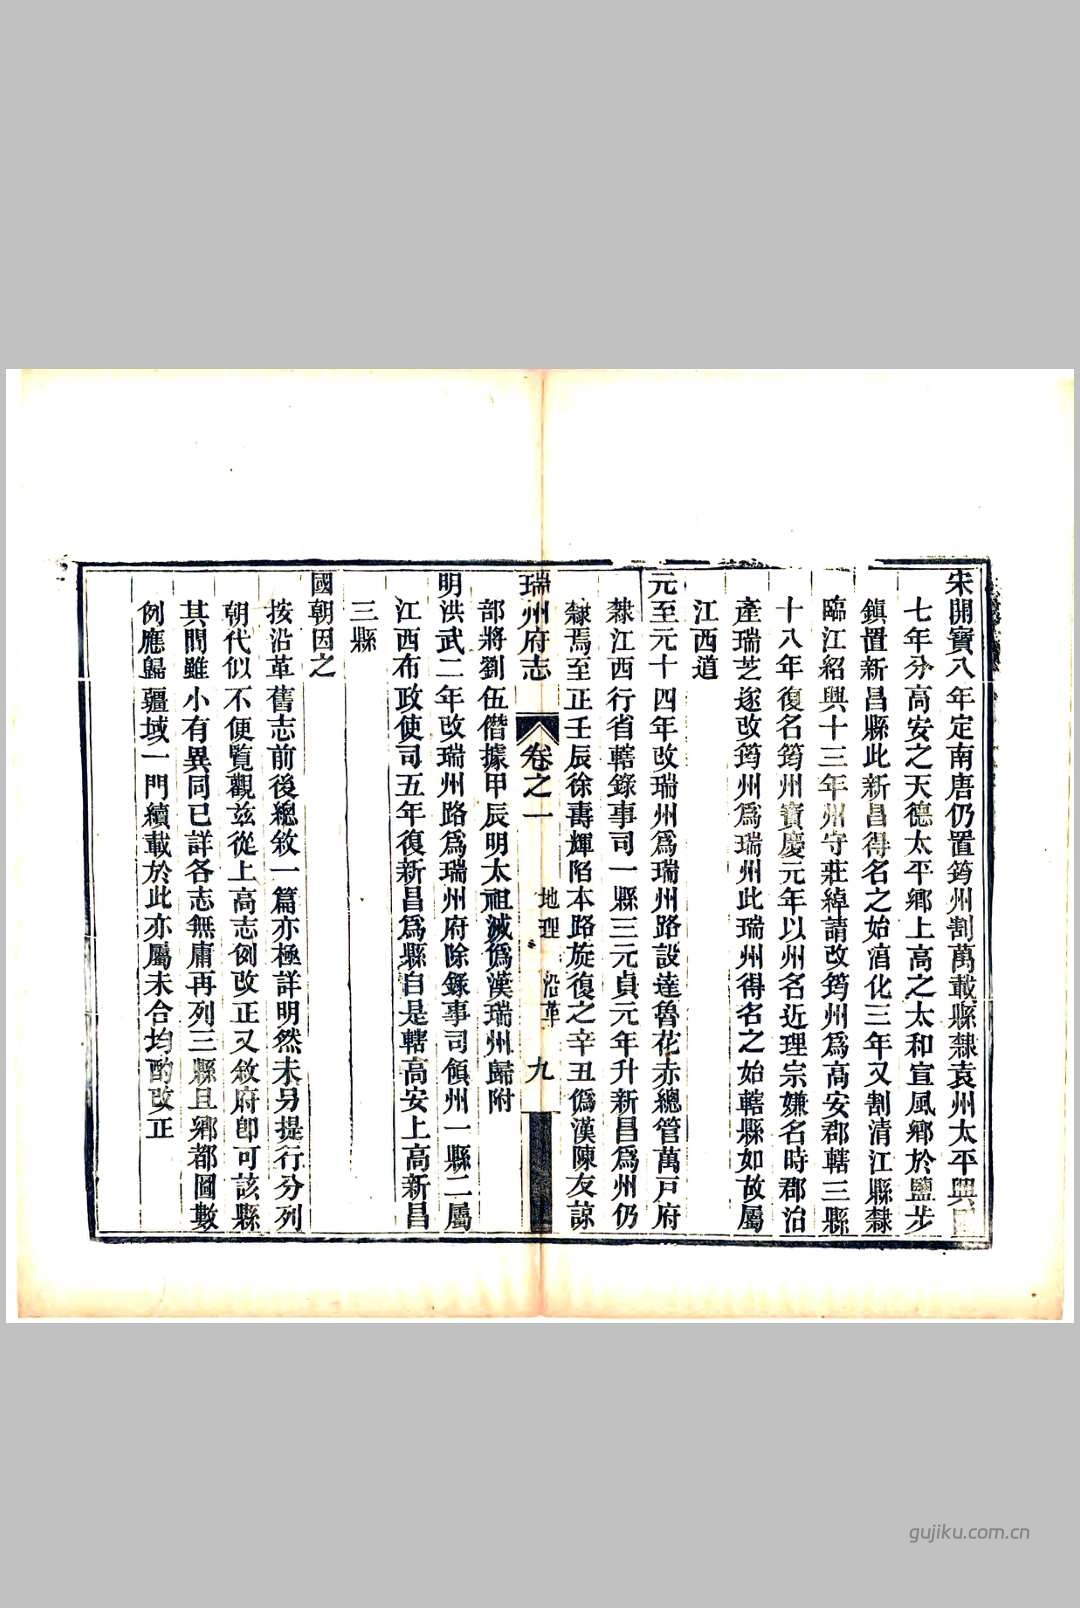 宋開寶八年定南唐仍置筠州割萬載縣隸袁州太平興國
七年分高安之天德太平鄉上高之太和宣風鄉於鹽步
鎮置新昌縣此新昌得名之始淯化三年又割清江縣隸
臨江紹興十三年州守莊綽請改筠州爲高安郡轄三縣
十八年復名筠州寶慶元年以州名近理宗嫌名時郡治
產瑞芝遂改筠州爲瑞州此瑞州得名之始轄縣如故屬
江西道
元至元十四年改瑞州爲瑞州路設達魯花赤總管萬戸府
隸江西行省轄錄事司一縣三元貞元年升新昌爲州仍
隸焉至正壬辰徐壽輝陷本路旋復之辛丑僞漢陳友諒
瑞州府志 卷之一 地理 沿革 九
部將劉伍僭據甲辰明太祖滅僞漢瑞州歸附
明洪武二年改瑞州路爲瑞州府除錄事司領州一縣二屬
江西布政使司五年復新昌爲縣自是轄高安上高新昌
三縣
國朝因之
按沿革舊志前後總敘一篇亦極詳明然未另提行分列
朝代似不便覧觀兹從上高志例改正又敘府卽可該縣
其間雖小有異同已詳各志無庸再列三縣且鄉都圖數
例應歸疆域一門續載於此亦屬未合均酌改正
gujiku.com.cn